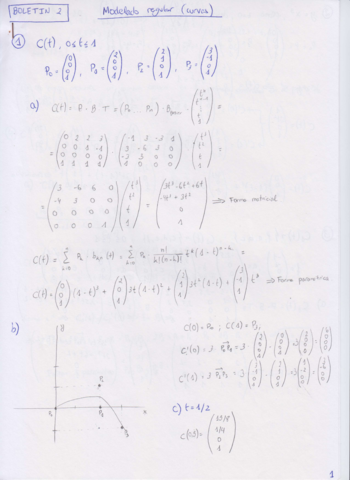 BOLETIN 2 Modelado regular (curvas)
① C(t), 0≤t≤1
P₀ = (0 0 0 1), P₁ = (2 0 0 1), P₂ = (2 1 0 1), P₃ = (3 -1 0 1)
a) C(t) = P · B · T = (P₀ ... Pₙ) · B
= (0 2 2 3 / 0 0 1 -1 / 0 0 0 0 / 1 1 1 1) · (-1 3 -3 1 / 3 -6 3 0 / -3 3 0 0 / 1 0 0 0) · (t³ t² t 1) =
= (3 -6 6 0 / -4 3 0 0 / 0 0 0 0 / 0 0 0 1) (t³ t² t 1) = (3t³-6t²+6t / -4t³+3t² / 0 / 1) ⇒ Forma matricial
C(t) = Σ Pₖ · bₖ,ₙ(t) = Σ Pₖ n!/k!(n-k)! tᵏ (1-t)ⁿ⁻ᵏ =
C(t) = (0 0 0 1) (1-t)³ + (2 0 0 1) 3t (1-t)² + (2 1 0 1) 3t² (1-t) + (3 -1 0 1) t³ ⇒ Forma parametrica
b) C(0) = P₀ ; C(1) = P₃
C'(0) = 3 · P₀P₁ = 3 ·
C'(1) = 3 P₂P₃ = 3
c) t = 1/2
C(0.5) = (15/8 1/4 0 1)
1